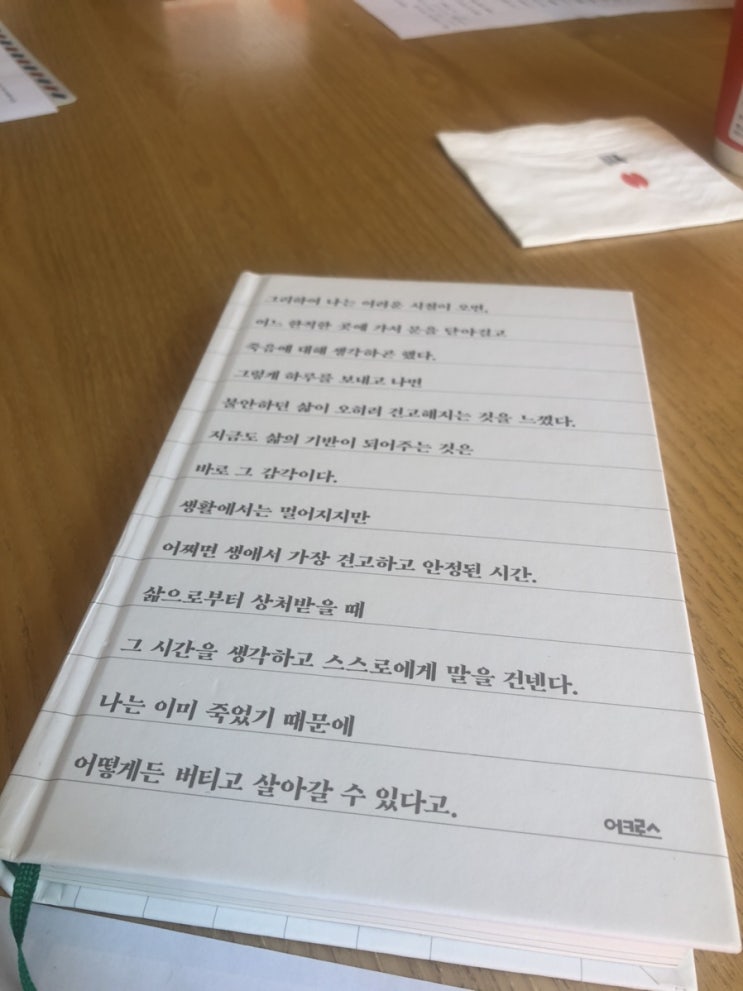 그리하여 나는 어려운 시절이 오면,
어느 한적한 곳에 가서 문을 닫아걸고
죽음에 대해 생각하곤 했다.
그렇게 하루를 보내고 나면
불안하던 삶이 오히려 견고해지는 것을 느꼈다.
지금도 삶의 기반이 되어주는 것은
바로 그 감각이다.
생활에서는 멀어지지만
어쩌면 생에서 가장 견고하고 안정된 시간.
삶으로부터 상처받을 때
그 시간을 생각하고 스스로에게 말을 건넨다.
나는 이미 죽었기 때문에
어떻게든 버티고 살아갈 수 있다고.
어크로스